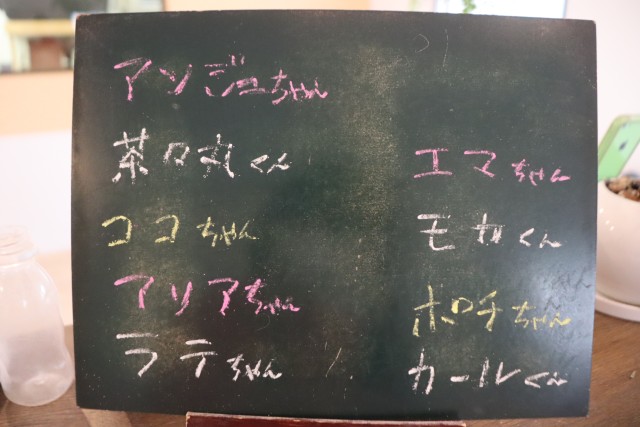 アンジュちゃん
茶々丸くん
ココちゃん
アリアちゃん
ラテちゃん
エマちゃん
モカくん
ポロチちゃん
カールくん